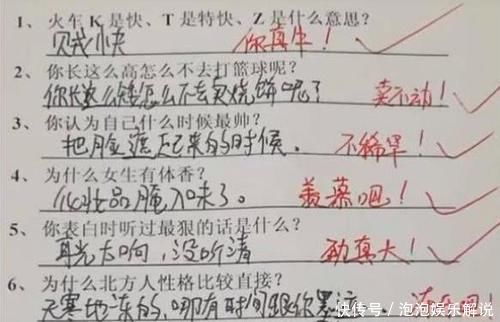 1、火车 K 是快、T 是特快、Z 是什么意思?
贼快 你真牛!
2、你长这么高怎么不去打篮球呢?
你长这么矮怎么不去卖烧饼呢? 卖不动!
3、你认为自己什么时候最帅?
把脸遮起来的时候。 不稀罕!
4、为什么女生有体香?
化妆品腌入味了。 羡慕吧!
5、你表白时听过最狠的话是什么?
耳光太响,没听清 劲真大!
6、为什么北方人性格比较直接?
天寒地冻的,哪有时间跟你墨迹
快传号/泡泡娱乐解说